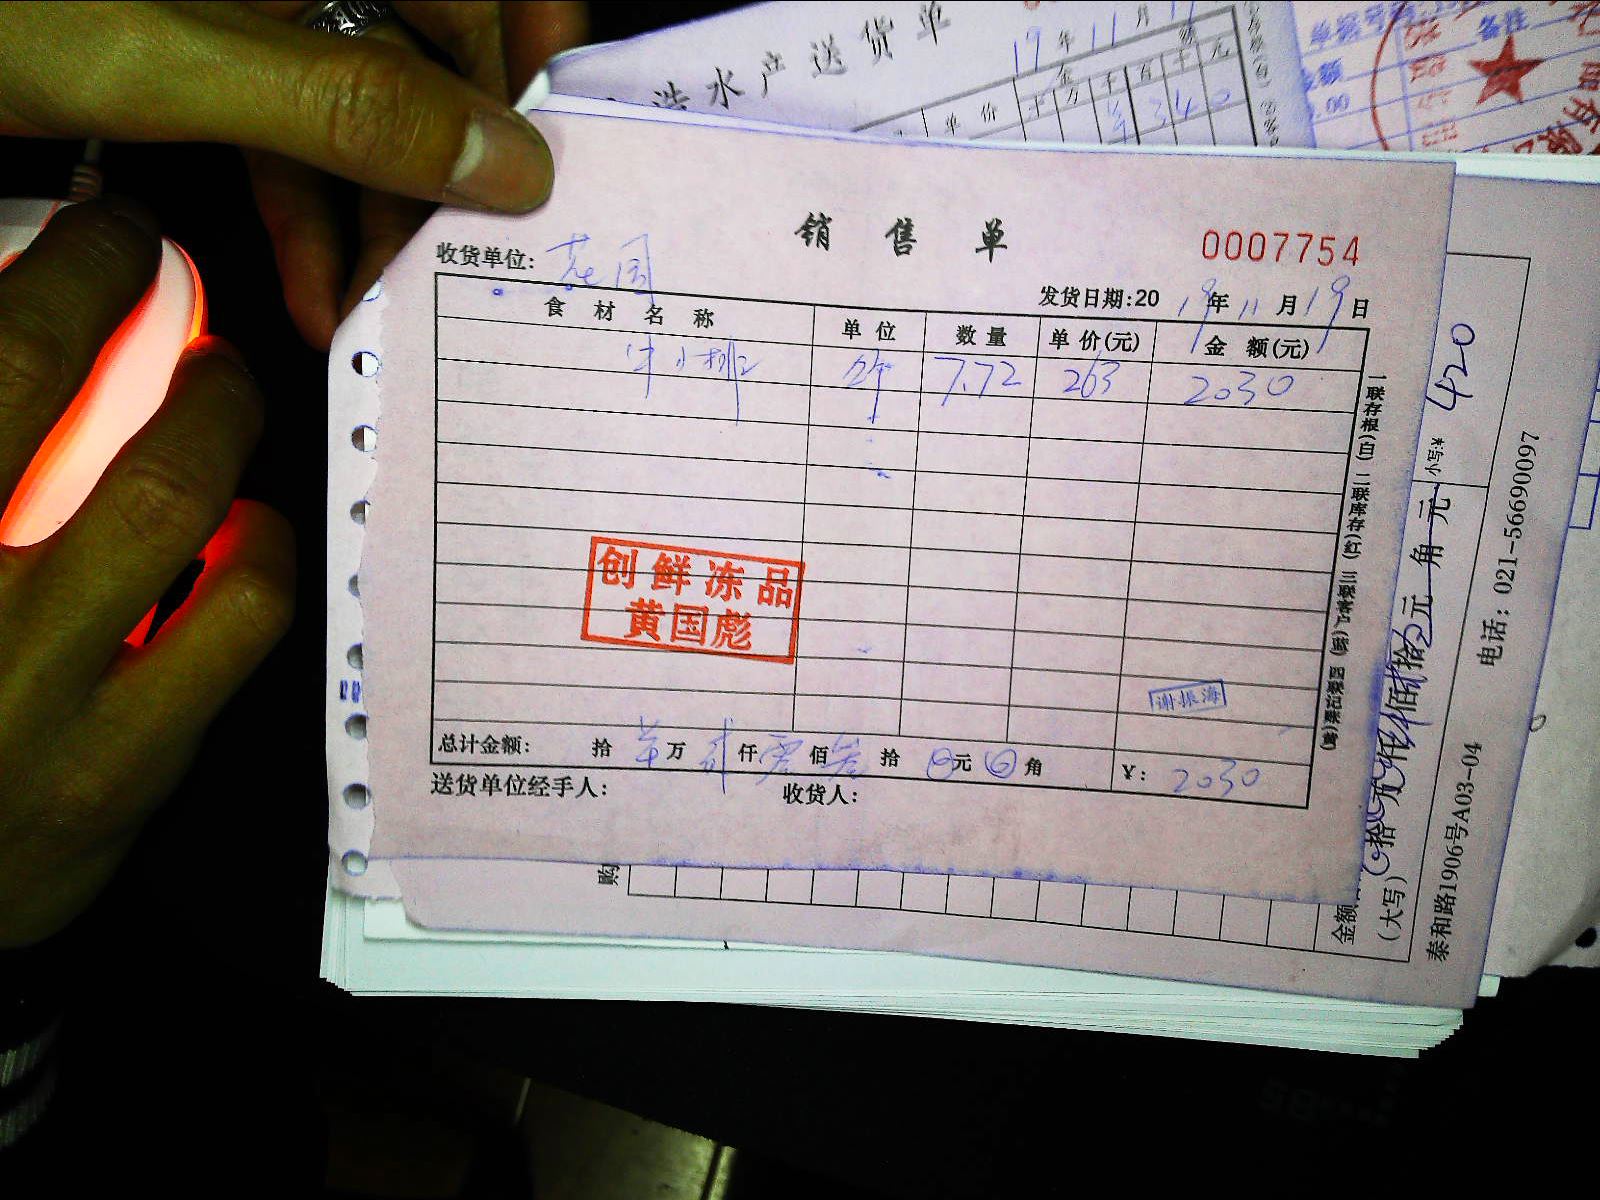 水产送货单
19年11月
单价
万千百十元
备注
销售单
0007754
收货单位:花园
发货日期:2019年11月19日
食材名称 单位 数量 单价(元) 金额(元)
牛小排 7.72 263 2030
创鲜冻品
黄国彪
谢振海
总计金额: 拾 万 贰仟零佰叁拾 元 角 ¥: 2030
送货单位经手人: 收货人:
一联存根(白) 二联库存(红)
小写:¥ 420
(大写)
泰和路1906号A03-04 电话:021-56690097
购